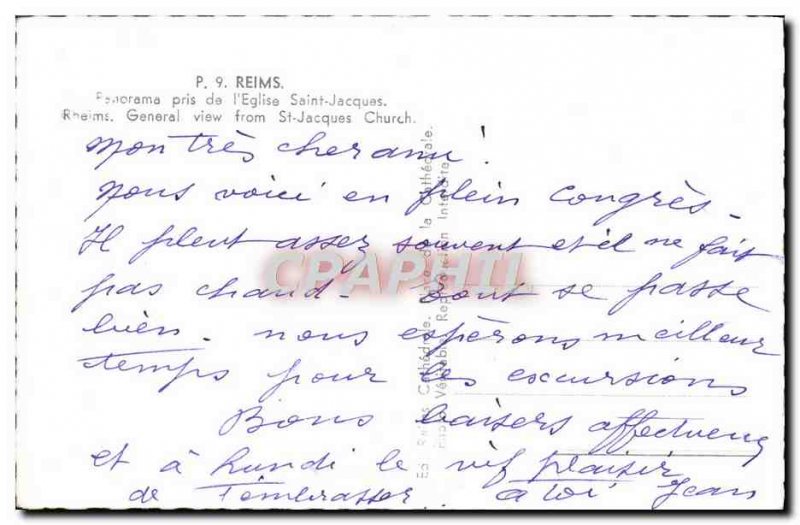 P. 9. REIMS.
Panorama pris de l'Eglise Saint-Jacques.
Rheims. General view from St-Jacques Church.
Mon très cher ami!
Nous voici en plein Congrès -
Il pleut assez souvent et il ne fait
pas chaud - Tout se passe
bien - nous espérons meilleur
temps pour les excursions
Bons baisers affectueux
et à Lundi le vif plaisir
de t'embrasser. à toi Jean
CPAPHIL
Ed. Reims Cathédrale, de la Cathédrale.
Véritable Reproduction Interdite